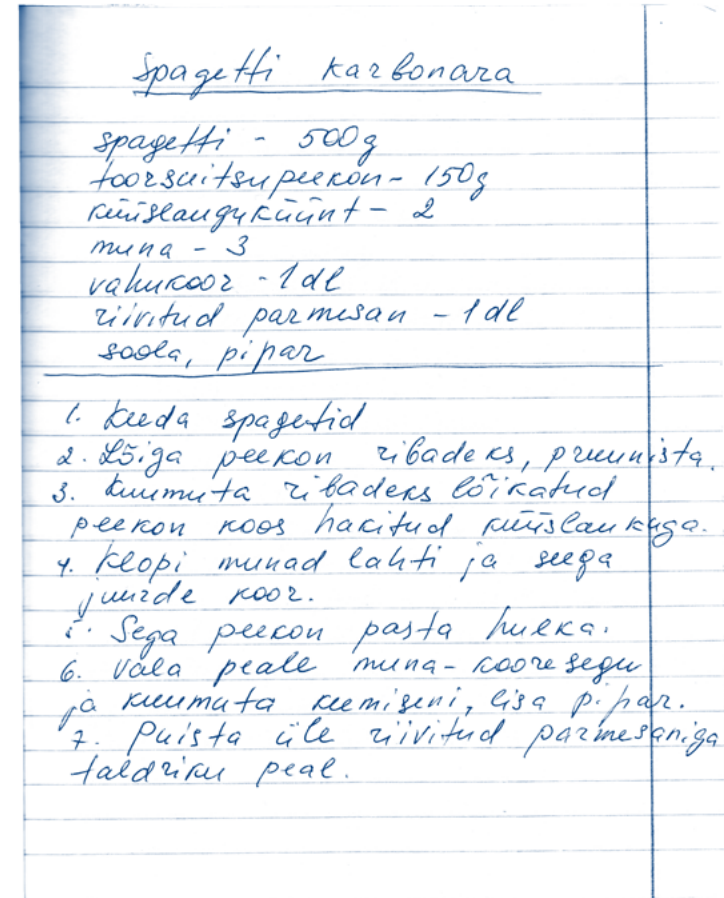 Spagetti karbonara
spagetti - 500g
toorsuitsupeekon - 150g
küüslauguküünt - 2
muna - 3
vahukoor - 1 dl
riivitud parmesan - 1 dl
soola, pipar
1. Keeda spagetid
2. Lõiga peekon ribadeks, pruunista.
3. Kuumuta ribadeks lõikatud
peekon koos hakitud küüslaukuga.
4. Klopi munad lahti ja seega
juurde koor.
5. Sega peekon pasta hulka.
6. Vala peale muna-koore segu
ja kuumuta keemiseni, lisa pipar.
7. Puista üle riivitud parmesaniga
taldriku peal.